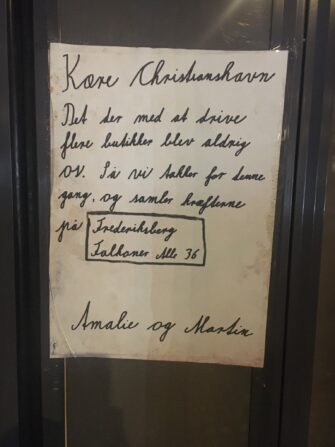 Kære Christianshavn
Det der med at drive
flere butikker blev aldrig
os. Så vi takker for denne
gang, og samler kræfterne
på Frederiksberg
Falkoner Alle 36
Amalie og Martin